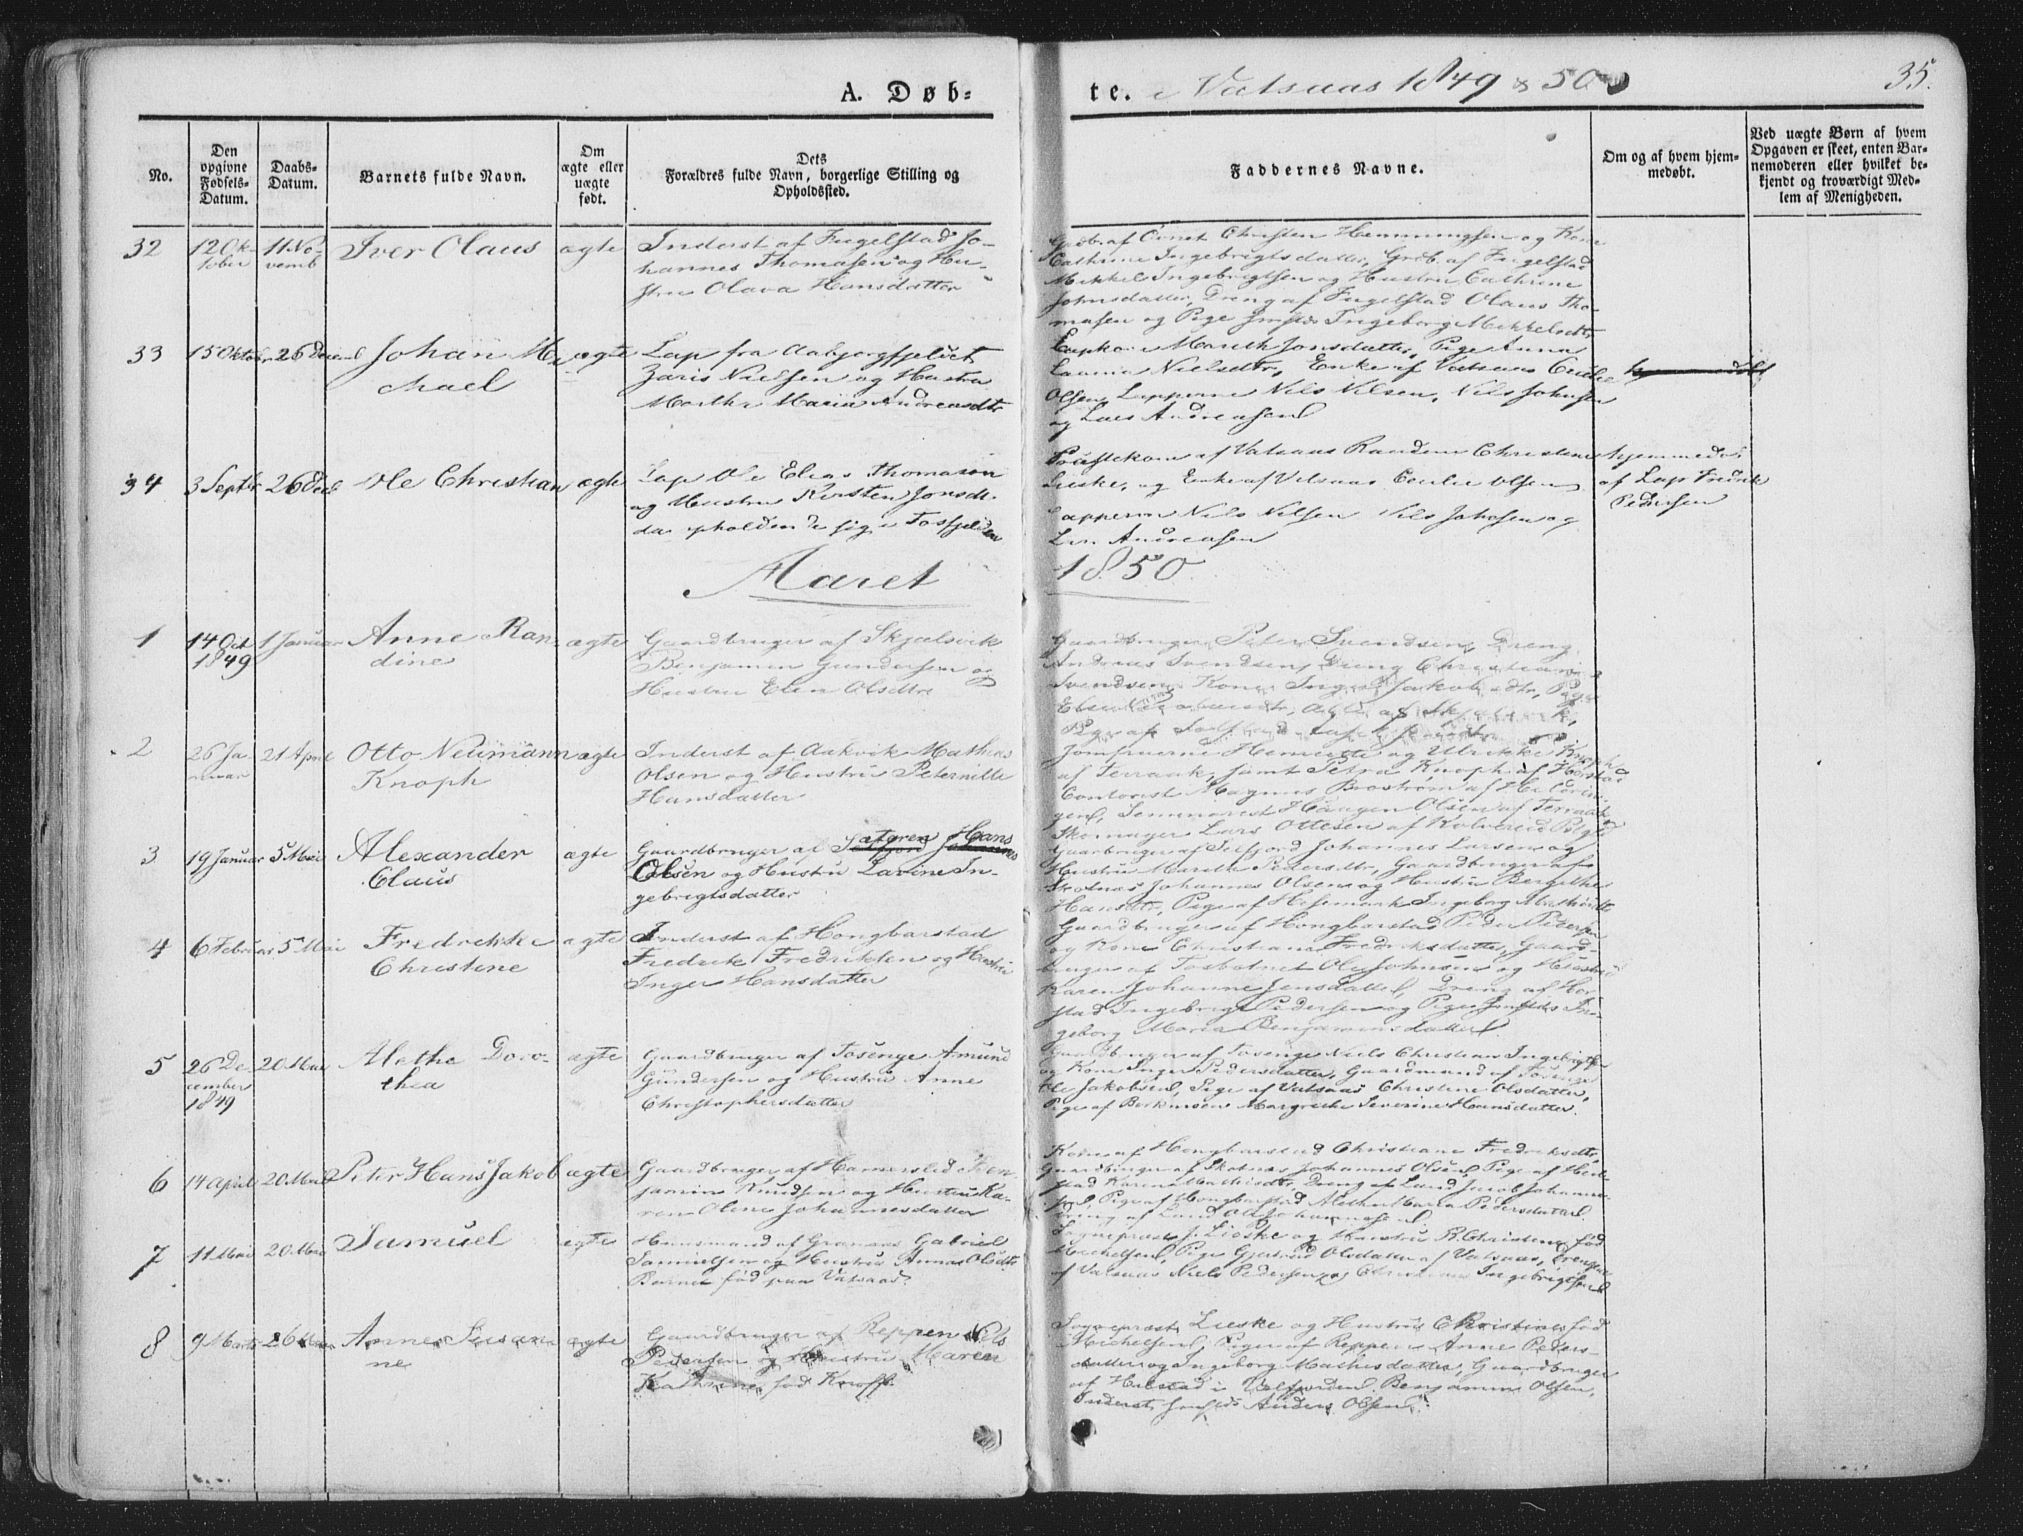 A. Døb-
te. i Vatsaas 1849 & 50
35.
No.
Den opgivne Fødsels-Datum.
Daabs-Datum.
Barnets fulde Navn.
Om ægte eller uægte født.
Dets Forældres fulde Navn, borgerlige Stilling og Opholdssted.
Faddernes Navne.
Om og af hvem hjem-medøbt.
Ved uægte Børn af hvem Opgaven er skeet, enten Bar-nemoderen eller hvilket be-kjendt og troværdigt Med-lem af Menigheden.
32
12 Ok-
tober
11 No-
vemb
Iver Olaus
ægte
Inderst af Fugelstad Jo-
hannes Thomasen og Hu-
stru Olava Hansdatter
Christen Hemmingsen og Kone
Cathrine Ingebrigtsdatter, Grdb. af Fugelstad
Mikkel Ingebrigtsen og Hustru Cathrine
Johnsdatter, Dreng af Fugelstad Olaus Tho-
masen og Pige Ingeborg Mikkelsdtr
33
15 Oktober
26 Decemb
Johan Mi-
chael
ægte
Lap fra Aabjørgfjeldet
Zaris Nielsen og Hustru
Marthe Maria Andreasdtr
Marith Jonsdatter, Pige Anna
Nielsdtr, Enke af Vatsaas Cecilie
Olsen, Lapperne Nils Nilsen, Nils Johnsen
og Lars Andreasen
34
3 Septbr
26 Dec
Ole Christian
ægte
Lap Ole Elias Thomasen
og Hustru Kirsten Jonsd.
opholdende sig i Tosfjeldene
af Vatsaas Randine Christine
Lieske, og Enke af Vatsaas Cecilie Olsen,
Lapperne Nils Nilsen Nils Johnsen og
Andreasen
hjemmedøbt
af Lap Fredrik
Pedersen
Aaret
1850
1
14 Oct
1849
1 Januar
Anne Ran-
dine
ægte
Gaardbruger af Skjælsvik
Benjamin Gundersen og
Hustru Elen Olsdtr
Gaardbruger Peter Svendsen, Dreng
Andreas Svendsen, Dreng Christian
Svendsen, Kone Inger Jakobsdtr, Pige
2
26 Ja-
nuar
21 April
Otto Neumann
Knoph
ægte
Inderst af Aakvik Mathias
Olsen og Hustru Peternille
Hansdatter
Jomfruerne Henriette og Ulrikke Knoph
af Terraak, samt Petra Knoph af Horstad
Contorist Magnus Broström af
Olsen af Terraak
Skomager Lars Ottesen af Kolvereid
3
19 Januar
5 Mai
Alexander
Claus
ægte
Gaardbruger af Sætgren Hans
Olsen og Hustru Lavine In-
gebrigtsdatter
Gaardbruger af Johannes Larsen og
Hustru Marith Pedersdtr, Gaardbruger af
Johannes Olsen og Hustru Bergithe
Hansdtr, Pige af Ingeborg
4
6 Februar
5 Mai
Fredrikke
Christine
ægte
Inderst af Hongbarstad
Fredrik Fredriksen og Hustru
Inger Hansdatter
Gaardbruger af Hongbarstad Peder Pedersen
og Kone Christiane Fredriksdatter, Gaard-
bruger af Tosbotnet Ole Johnsen og Hustru
Karen Johanne Jensdatter, Dreng af Hor-
stad Ingebrigt Pedersen og Pige In-
geborg Maria Benjaminsdatter
5
26 De-
cember
1849
20 Mai
Alethe Doro-
thea
ægte
Gaardbruger af Tosenge Amund
Gundersen og Hustru Anne
Christophersdatter
Gaardbruger af Tosenge Niels Christian Ingebrigtsen
og Kone Inger Pedersdatter, Gaardmand af Tosenge
Ole Jakobsen, Pige af Vatsaas Christine Olsdatter,
Pige af Margrethe Severine Hansdatter
6
14 April
20 Mai
Peter Hans Jakob
ægte
Gaardbruger af Hamersled Ben-
jamin Knudsen og Hustru Ka-
ren Oline Johannesdatter
Kone af Hongbarstad Christiane Fredriksdtr,
Gaardbruger af Skotnæs Johannes Olsen, Pige af
Karen Mathisdtr, Dreng af Lund Jacob Johanne-
sen, Pige af Hongbarstad Alethe Maria Pedersdatter
Dreng af Lund
7
11 Mai
20 Mai
Samuel
ægte
Huusmand af Gabriel
Samuelsen og Hustru Anna Olsdtr
Barnet født paa Vatsaas
Sognepræst J. Lieske og Hustru R. Christine, fød
Michelsen, Pige Gjertrud Olsdatter af Vatsaas, Drengene
af Vatsaas Niels Pedersen og Christian Ingebrigtsen
8
9 Marts
26 Mai
Anne Susan-
ne
ægte
Gaardbruger af Reppen Nils
Pedersen og Hustru Maren
Kathrine, fød Knoff
Sognepræst Lieske og Hustru Christine, fød
Michelsen, Pigen af Reppen Anne Peders-
datter og Ingeborg Mathisdatter, Gaardbruger
af Hilstad i Velfjorden Benjamin Olsen,
Inderst Anders Olsen